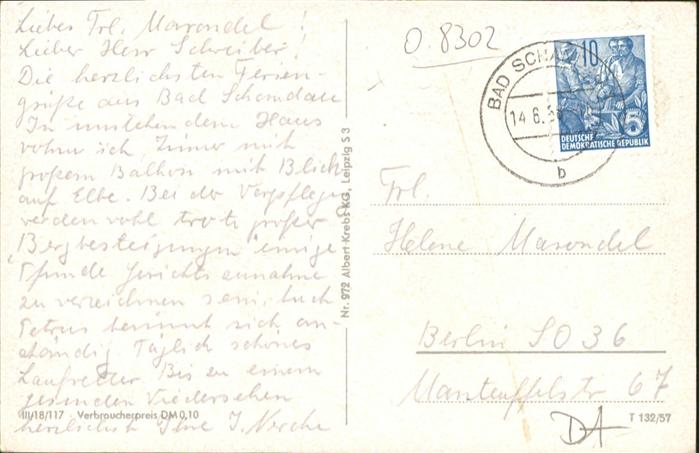 Liebes Frl. Marondel!
Lieber Herr Schreiber!
Die herzlichsten Ferien-
grüße aus Bad Schandau
In umstehendem Haus
wohn ich, Zimmer mit
großem Balkon mit Blick
auf Elbe. Bei der Verpflegung
werden wohl trotz großer
"Bergbesteigungen" einige
Pfunde Gewichtszunahme
zu verzeichnen sein. Auch
Petrus benimmt sich an-
ständig. Täglich schönes
Laufwetter. Bis zu einem
gesunden Wiedersehen
herzlichst Ihre J.
III/18/117 Verbraucherpreis DM 0,10
Nr. 972 Albert Krebs KG, Leipzig S 3
O. 8302
BAD SCHAN
14.6.5
b
10
5
DEUTSCHE
DEMOKRATISCHE REPUBLIK
Frl.
Helene Marondel
Berlin SO 36
Manteuffelstr 67
T 132/57